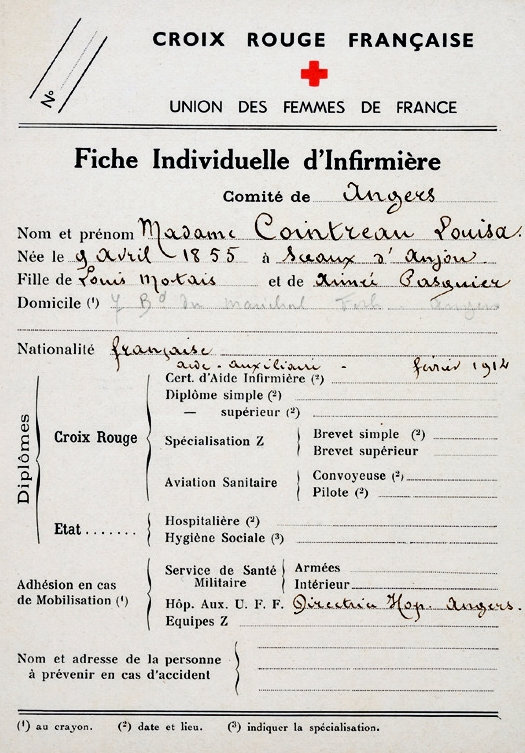 No
CROIX ROUGE FRANÇAISE
UNION DES FEMMES DE FRANCE
Fiche Individuelle d'Infirmière
Comité de Angers
Nom et prénom Madame Cointreau Louisa.
Née le 9 Avril 1855 à Sceaux d'Anjou
Fille de Louis Motais et de Aimée Pasquier
Domicile (1) 7 Bd du Maréchal Foch. Angers
Nationalité française
aide-auxiliaire - février 1914
Cert. d'Aide Infirmière (2)
Diplôme simple (2)
— supérieur (2)
Diplômes
Croix Rouge
Spécialisation Z
Brevet simple (2)
Brevet supérieur
Aviation Sanitaire
Convoyeuse (2)
Pilote (2)
Etat.......
Hospitalière (2)
Hygiène Sociale (3)
Adhésion en cas de Mobilisation (1)
Service de Santé Militaire
Armées
Intérieur
Hôp. Aux. U. F. F. Directrice Hop. Angers.
Equipes Z
Nom et adresse de la personne
à prévenir en cas d'accident
(1) au crayon. (2) date et lieu. (3) indiquer la spécialisation.